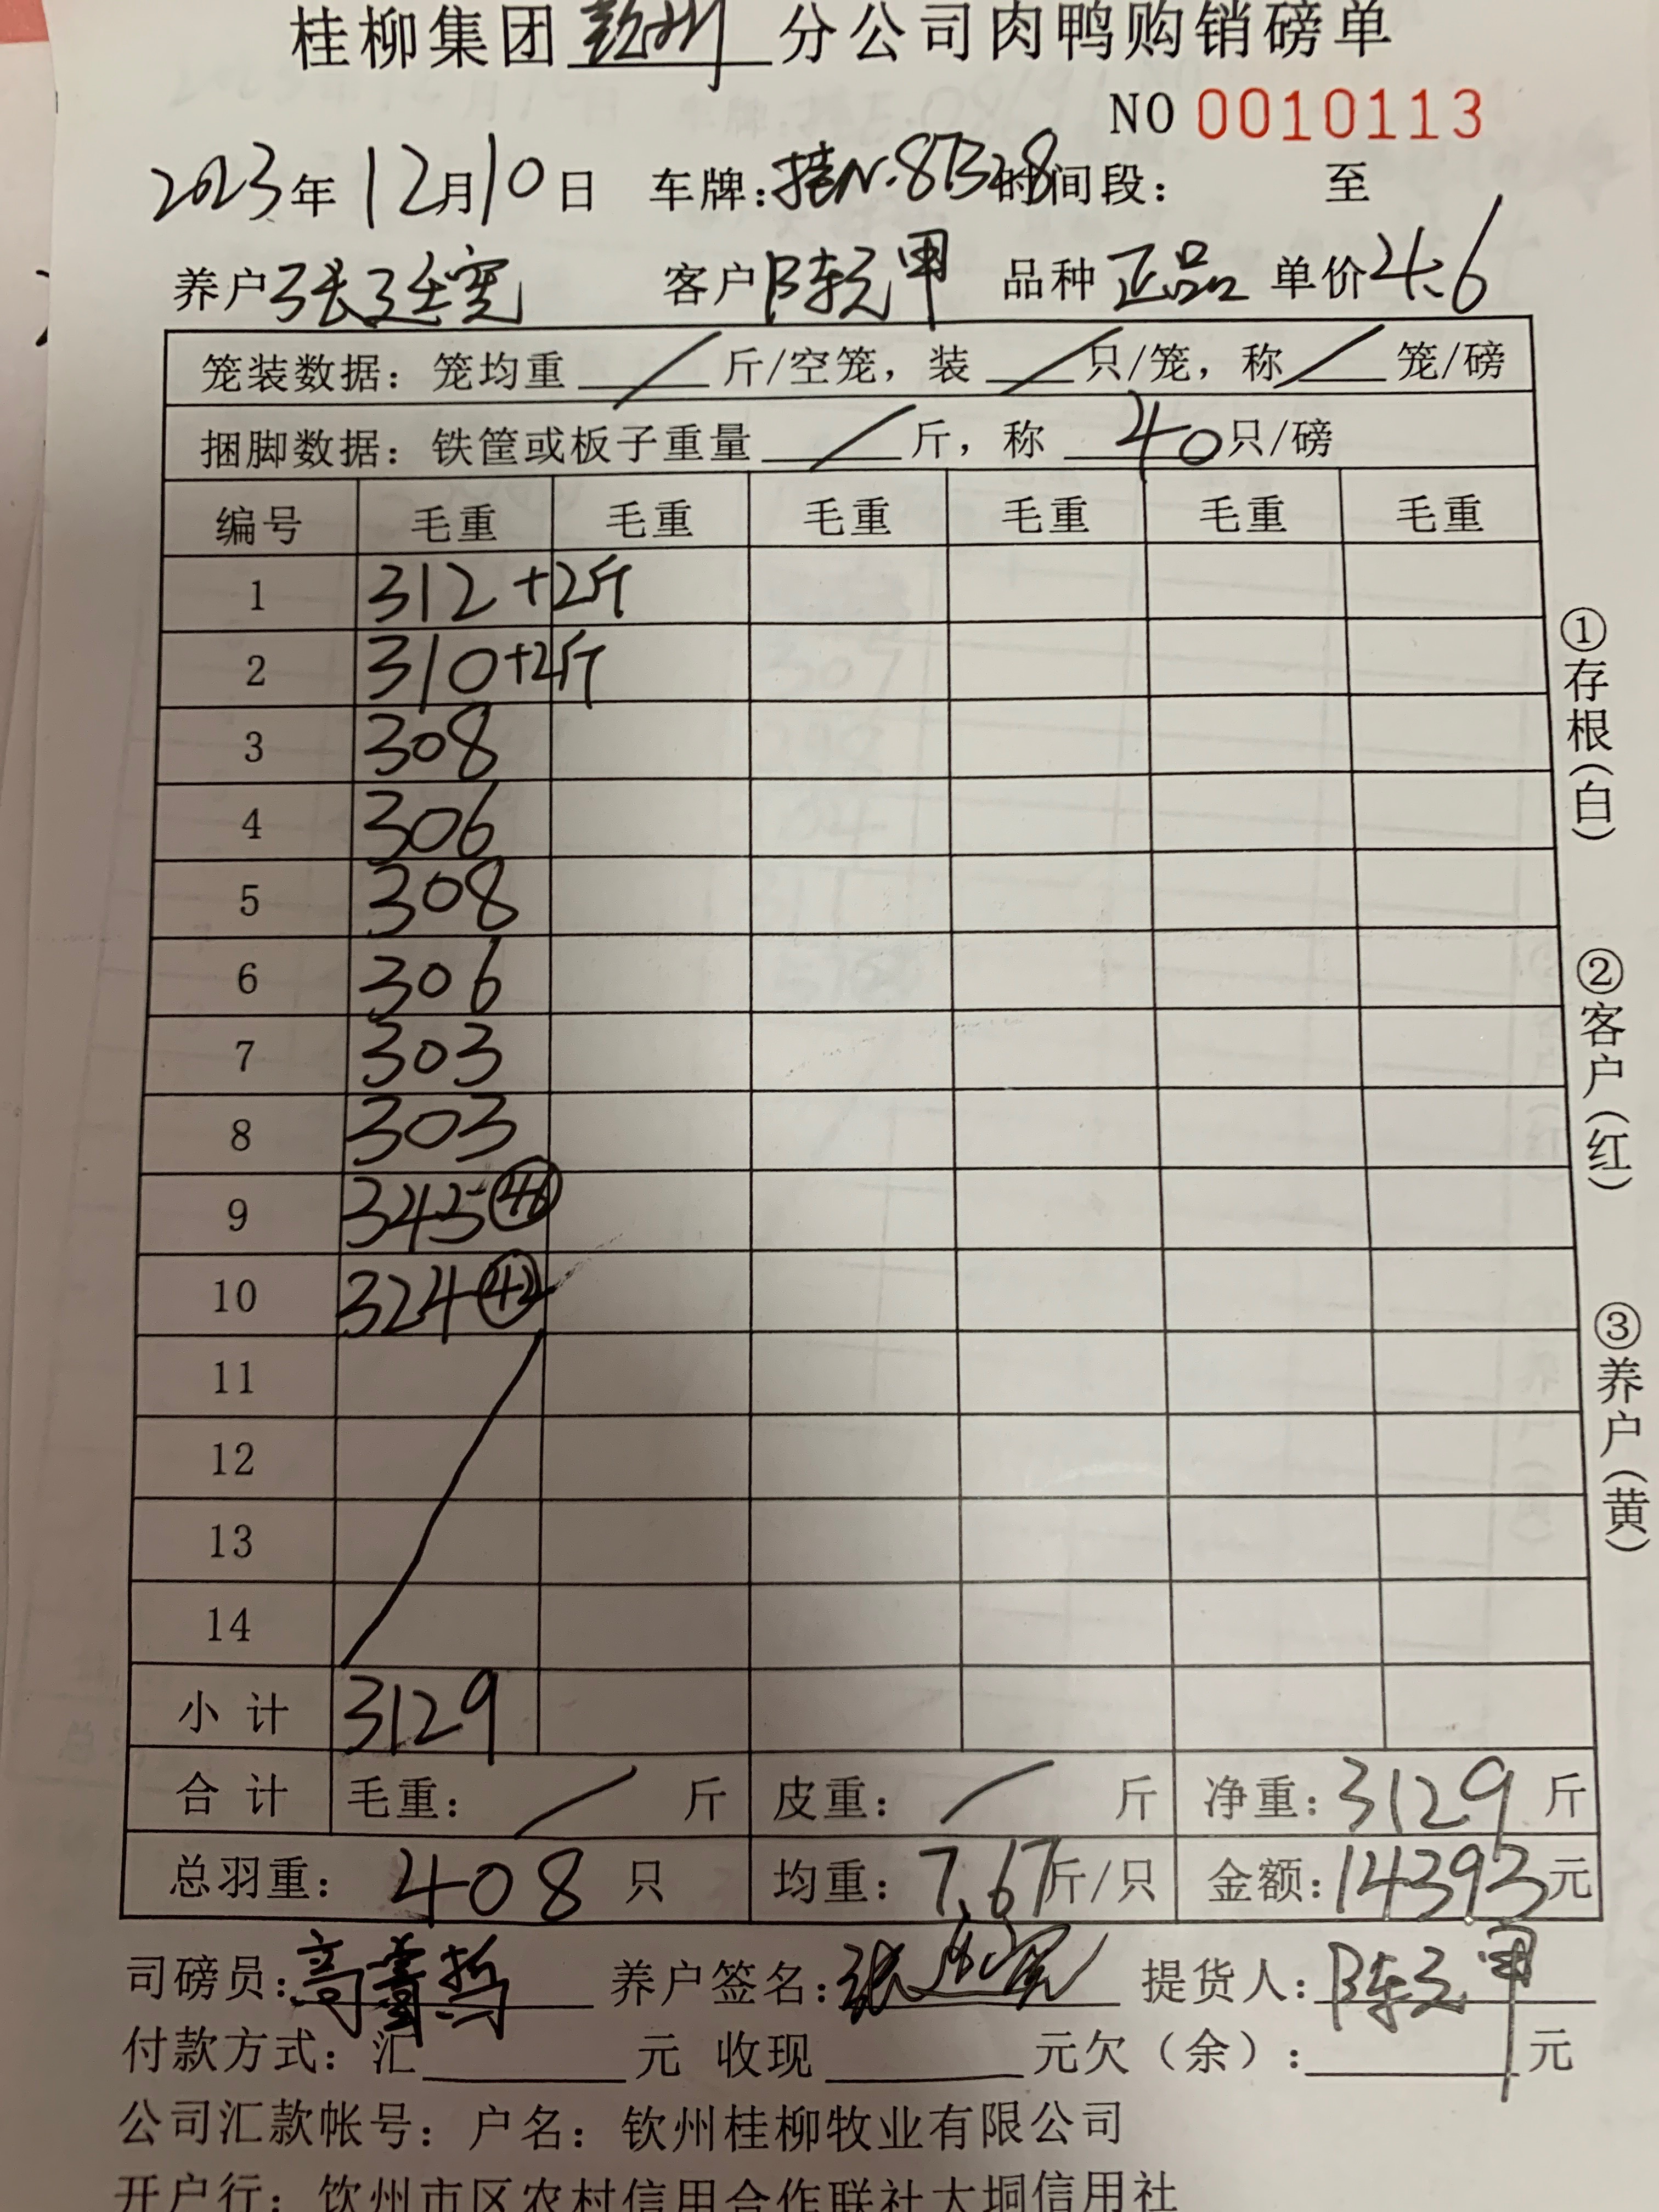 桂柳集团钦州分公司肉鸭购销磅单
NO 0010113
2023年12月10日 车牌:桂N.8B328时间段: 至
养户张廷宽 客户陈元甲 品种正品 单价4.6
笼装数据:笼均重/斤/空笼,装/只/笼,称/笼/磅
捆脚数据:铁筐或板子重量/斤,称40只/磅
编号 毛重 毛重 毛重 毛重 毛重 毛重
1 312+2斤
2 310+2斤
3 308
4 306
5 308
6 306
7 303
8 303
9 345 46
10 324 42
11
12
13
14
小计 3129
合计 毛重:/斤 皮重:/斤 净重:3129斤
总羽重:408只 均重:7.67斤/只 金额:14393元
司磅员: 养户签名:张廷宽 提货人:陈元甲
付款方式:汇 元 收现 元欠(余): 元
公司汇款帐号:户名:钦州桂柳牧业有限公司
开户行:钦州市区农村信用合作联社大垌信用社
①存根(白)
②客户(红)
③养户(黄)